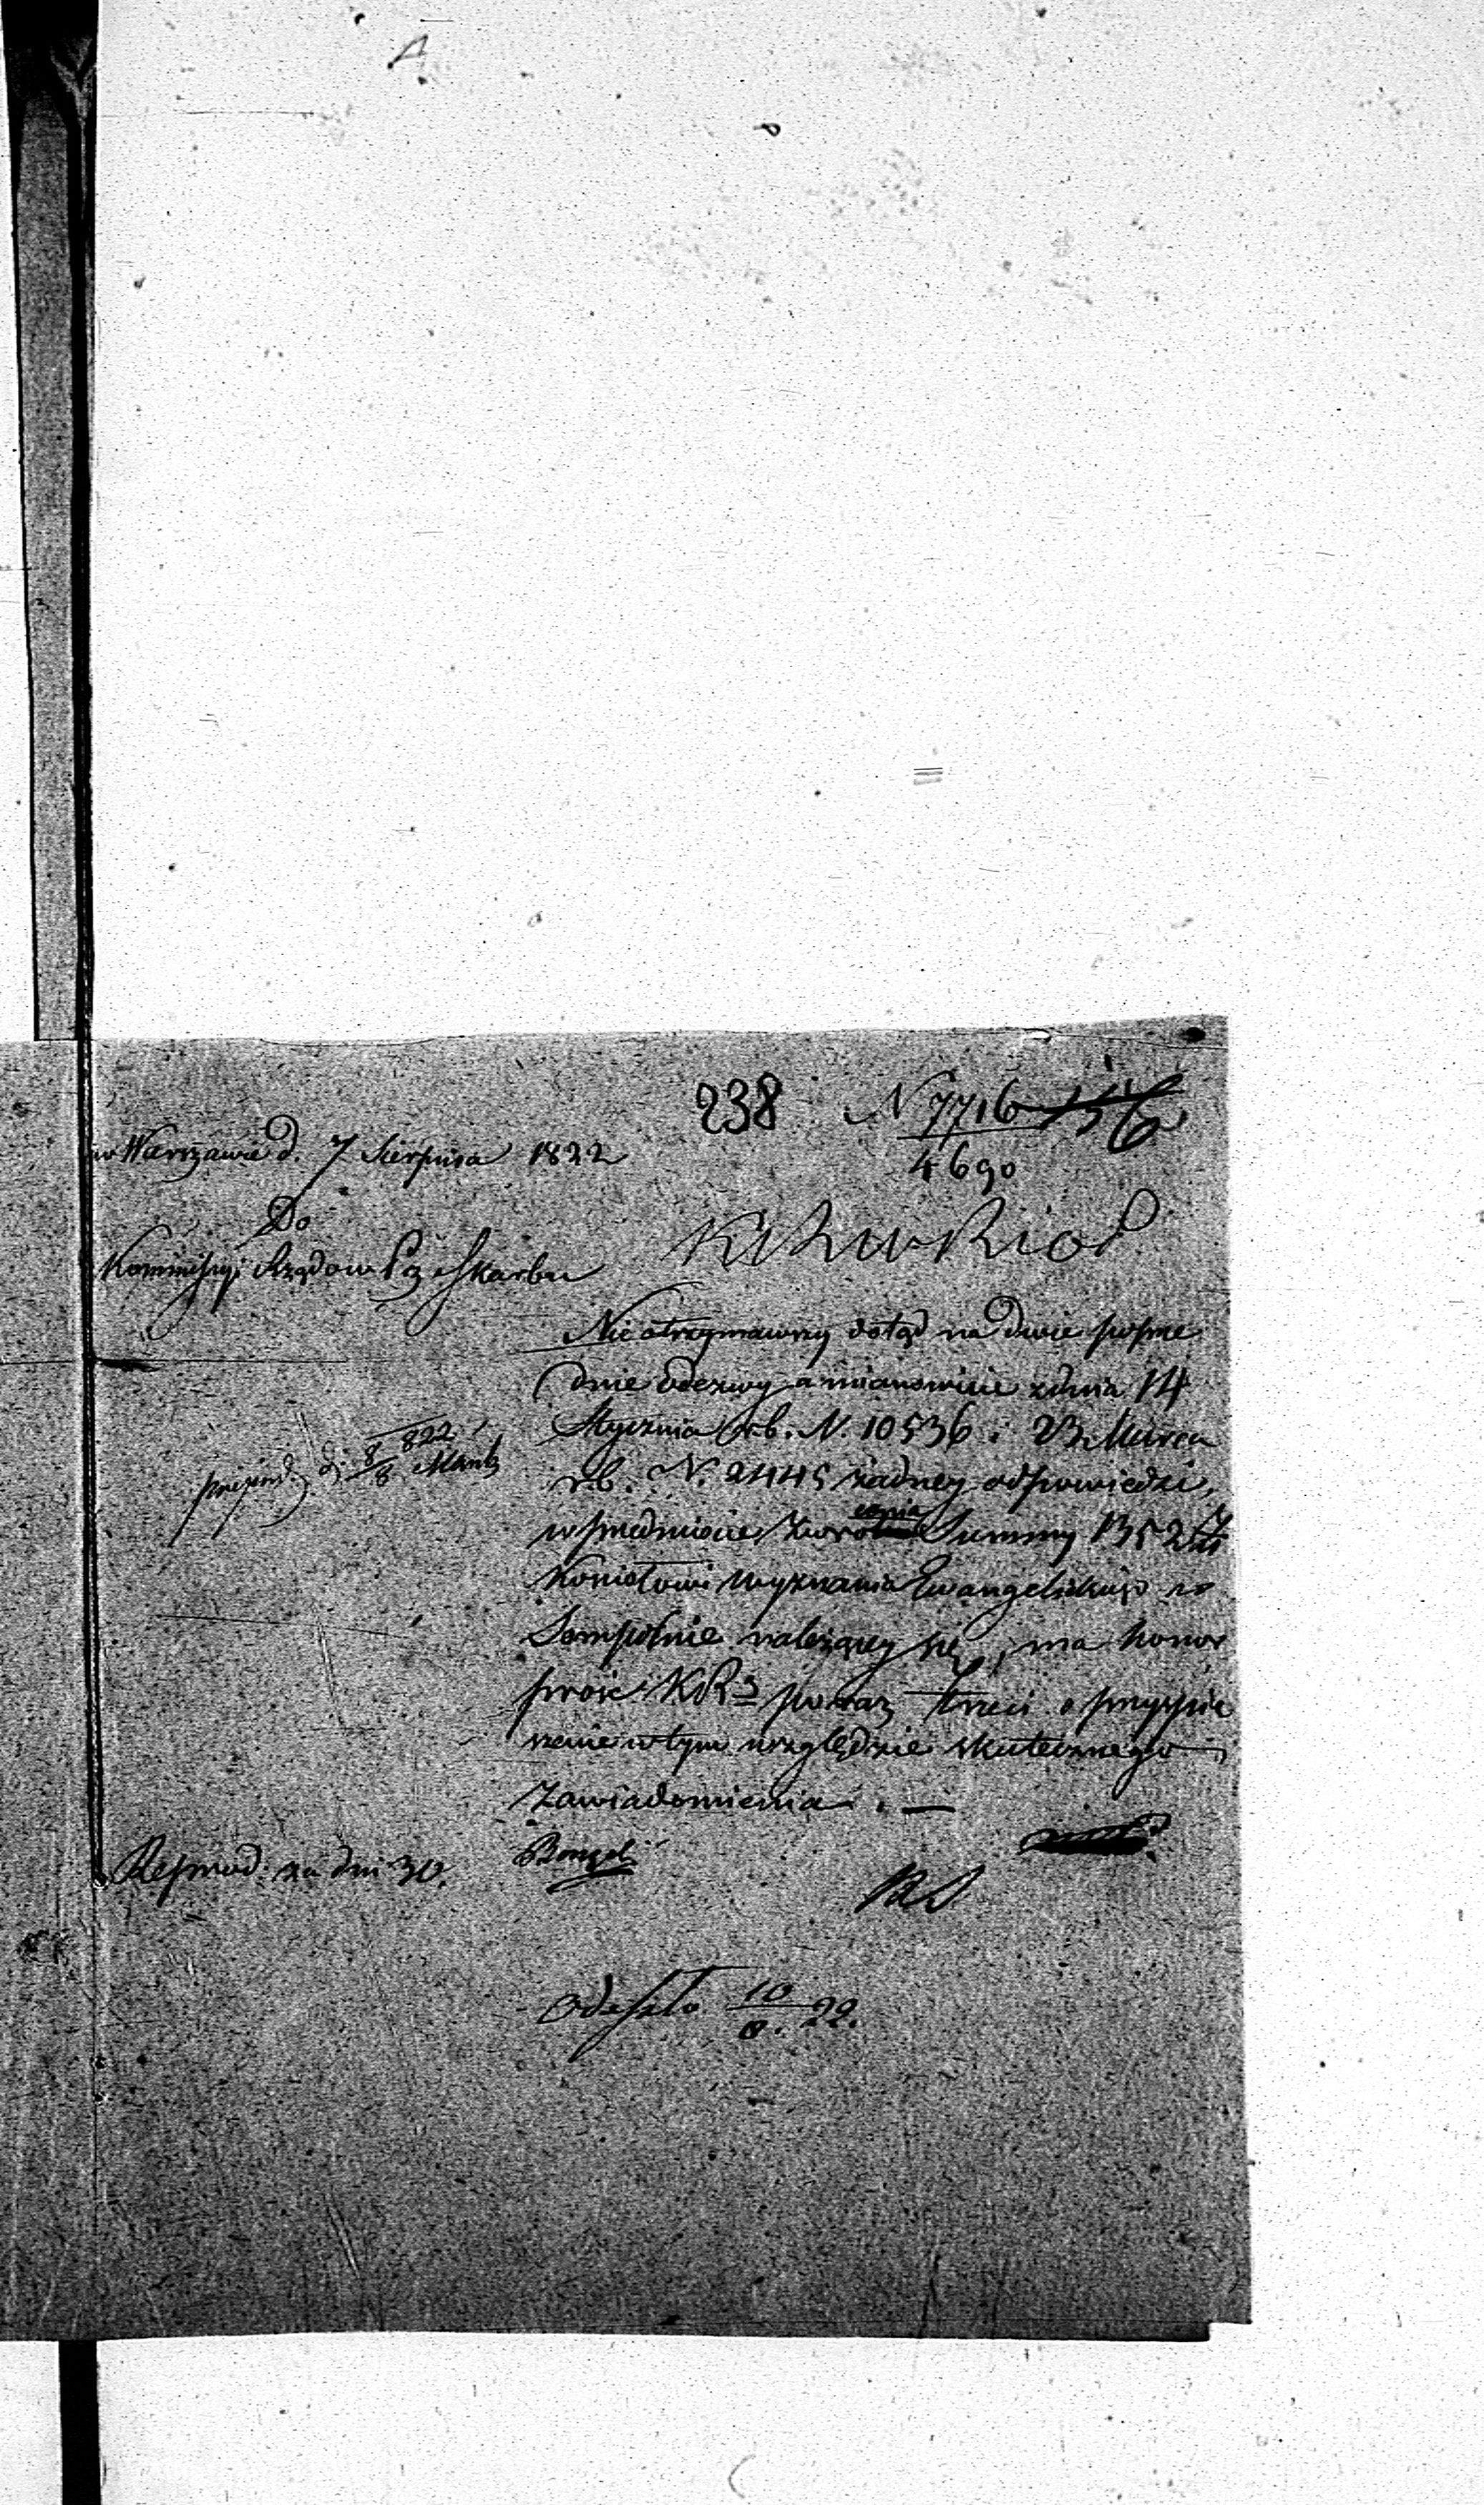 238
N 7716
4690
w Warszawie d. 7 Sierpnia 1822
Do
Kommissyi Rządow Prz. i Skarbu
KRzWRiOP
Nie otrzymawszy dotąd na dwie poprze
dnie odezwy a mianowicie z dnia 14
Stycznia rb. N. 10536 i 23 Marca
r.b. N. 2445 żadney odpowiedzi,
w przedmiocie zwrócenia Summy 1352
Kościołowi wyznania Ewangelickiego w
Sompolnie należącey się, ma honor
prosić KRS po raz trzeci o przyspie
szenie w tym względzie skutecznego
zawiadomienia. —
8/8 822
Reprod. za dni 30.
Odeszło 10/8. 22.